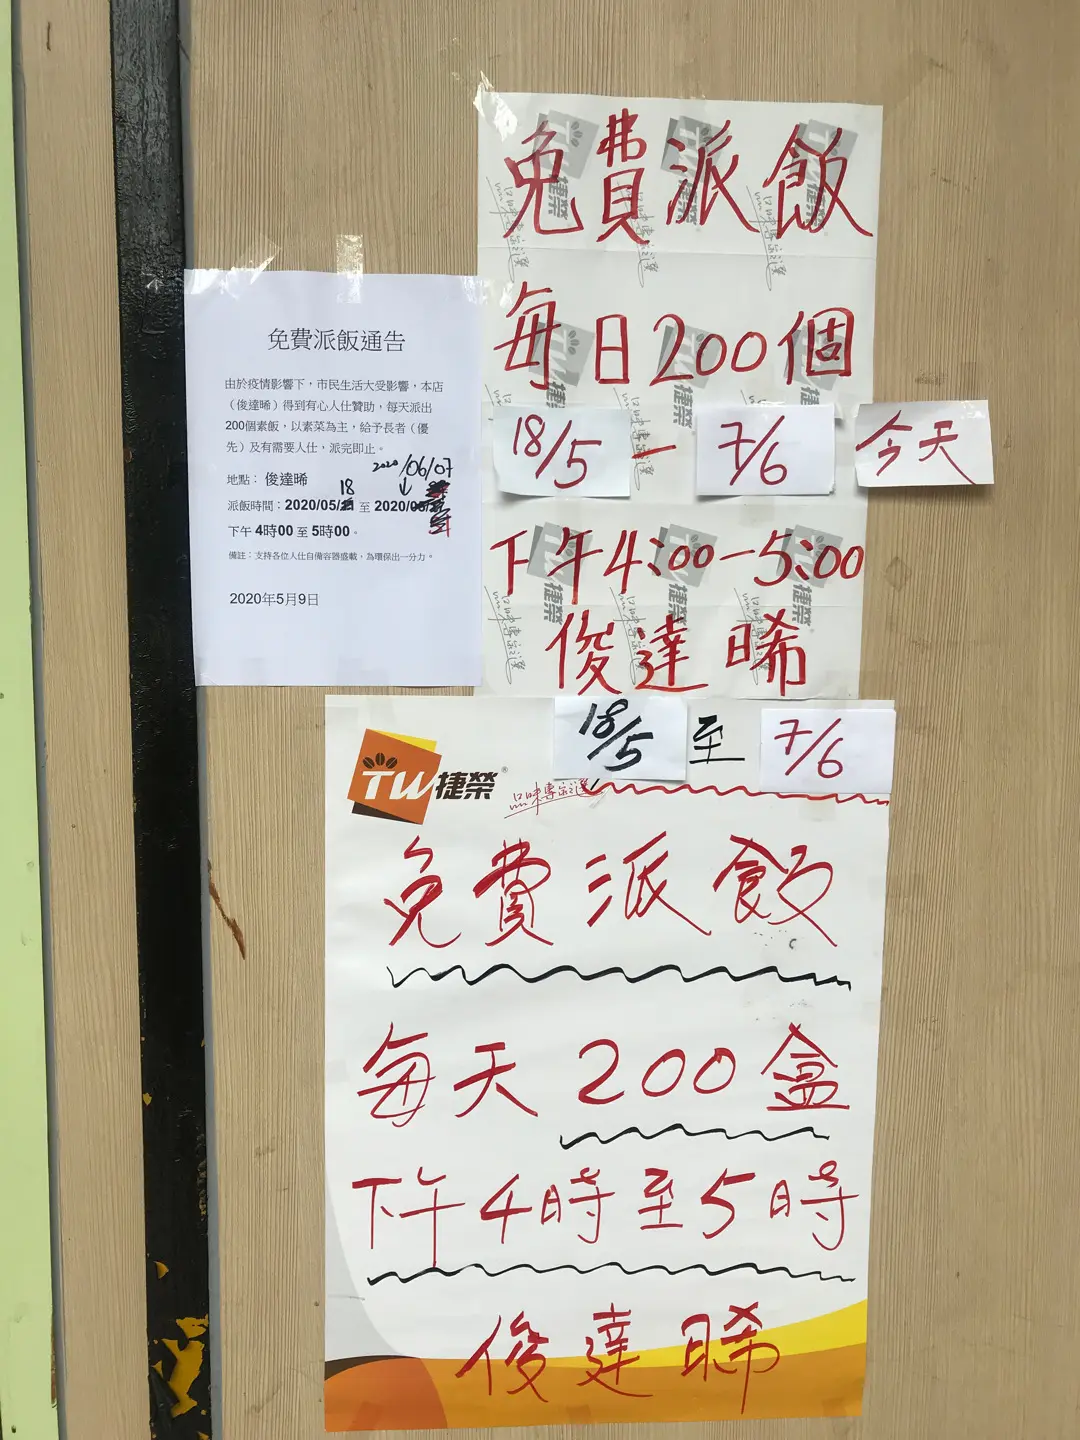 免費派飯
每日200個
18/5 - 7/6 今天
下午4:00-5:00
俊達晞
免費派飯通告
由於疫情影響下，市民生活大受影響，本店
（俊達晞）得到有心人仕贊助，每天派出
200個素飯，以素菜為主，給予長者（優
先）及有需要人仕，派完即止。
2020/06/07
地點： 俊達晞
18
派飯時間：2020/05/ 至 2020/
下午 4時00 至 5時00。
備註：支持各位人仕自備容器盛載，為環保出一分力。
2020年5月9日
18/5 至 7/6
TW捷榮®
品味專家之選
免費派飯
每天200盒
下午4時至5時
俊達晞